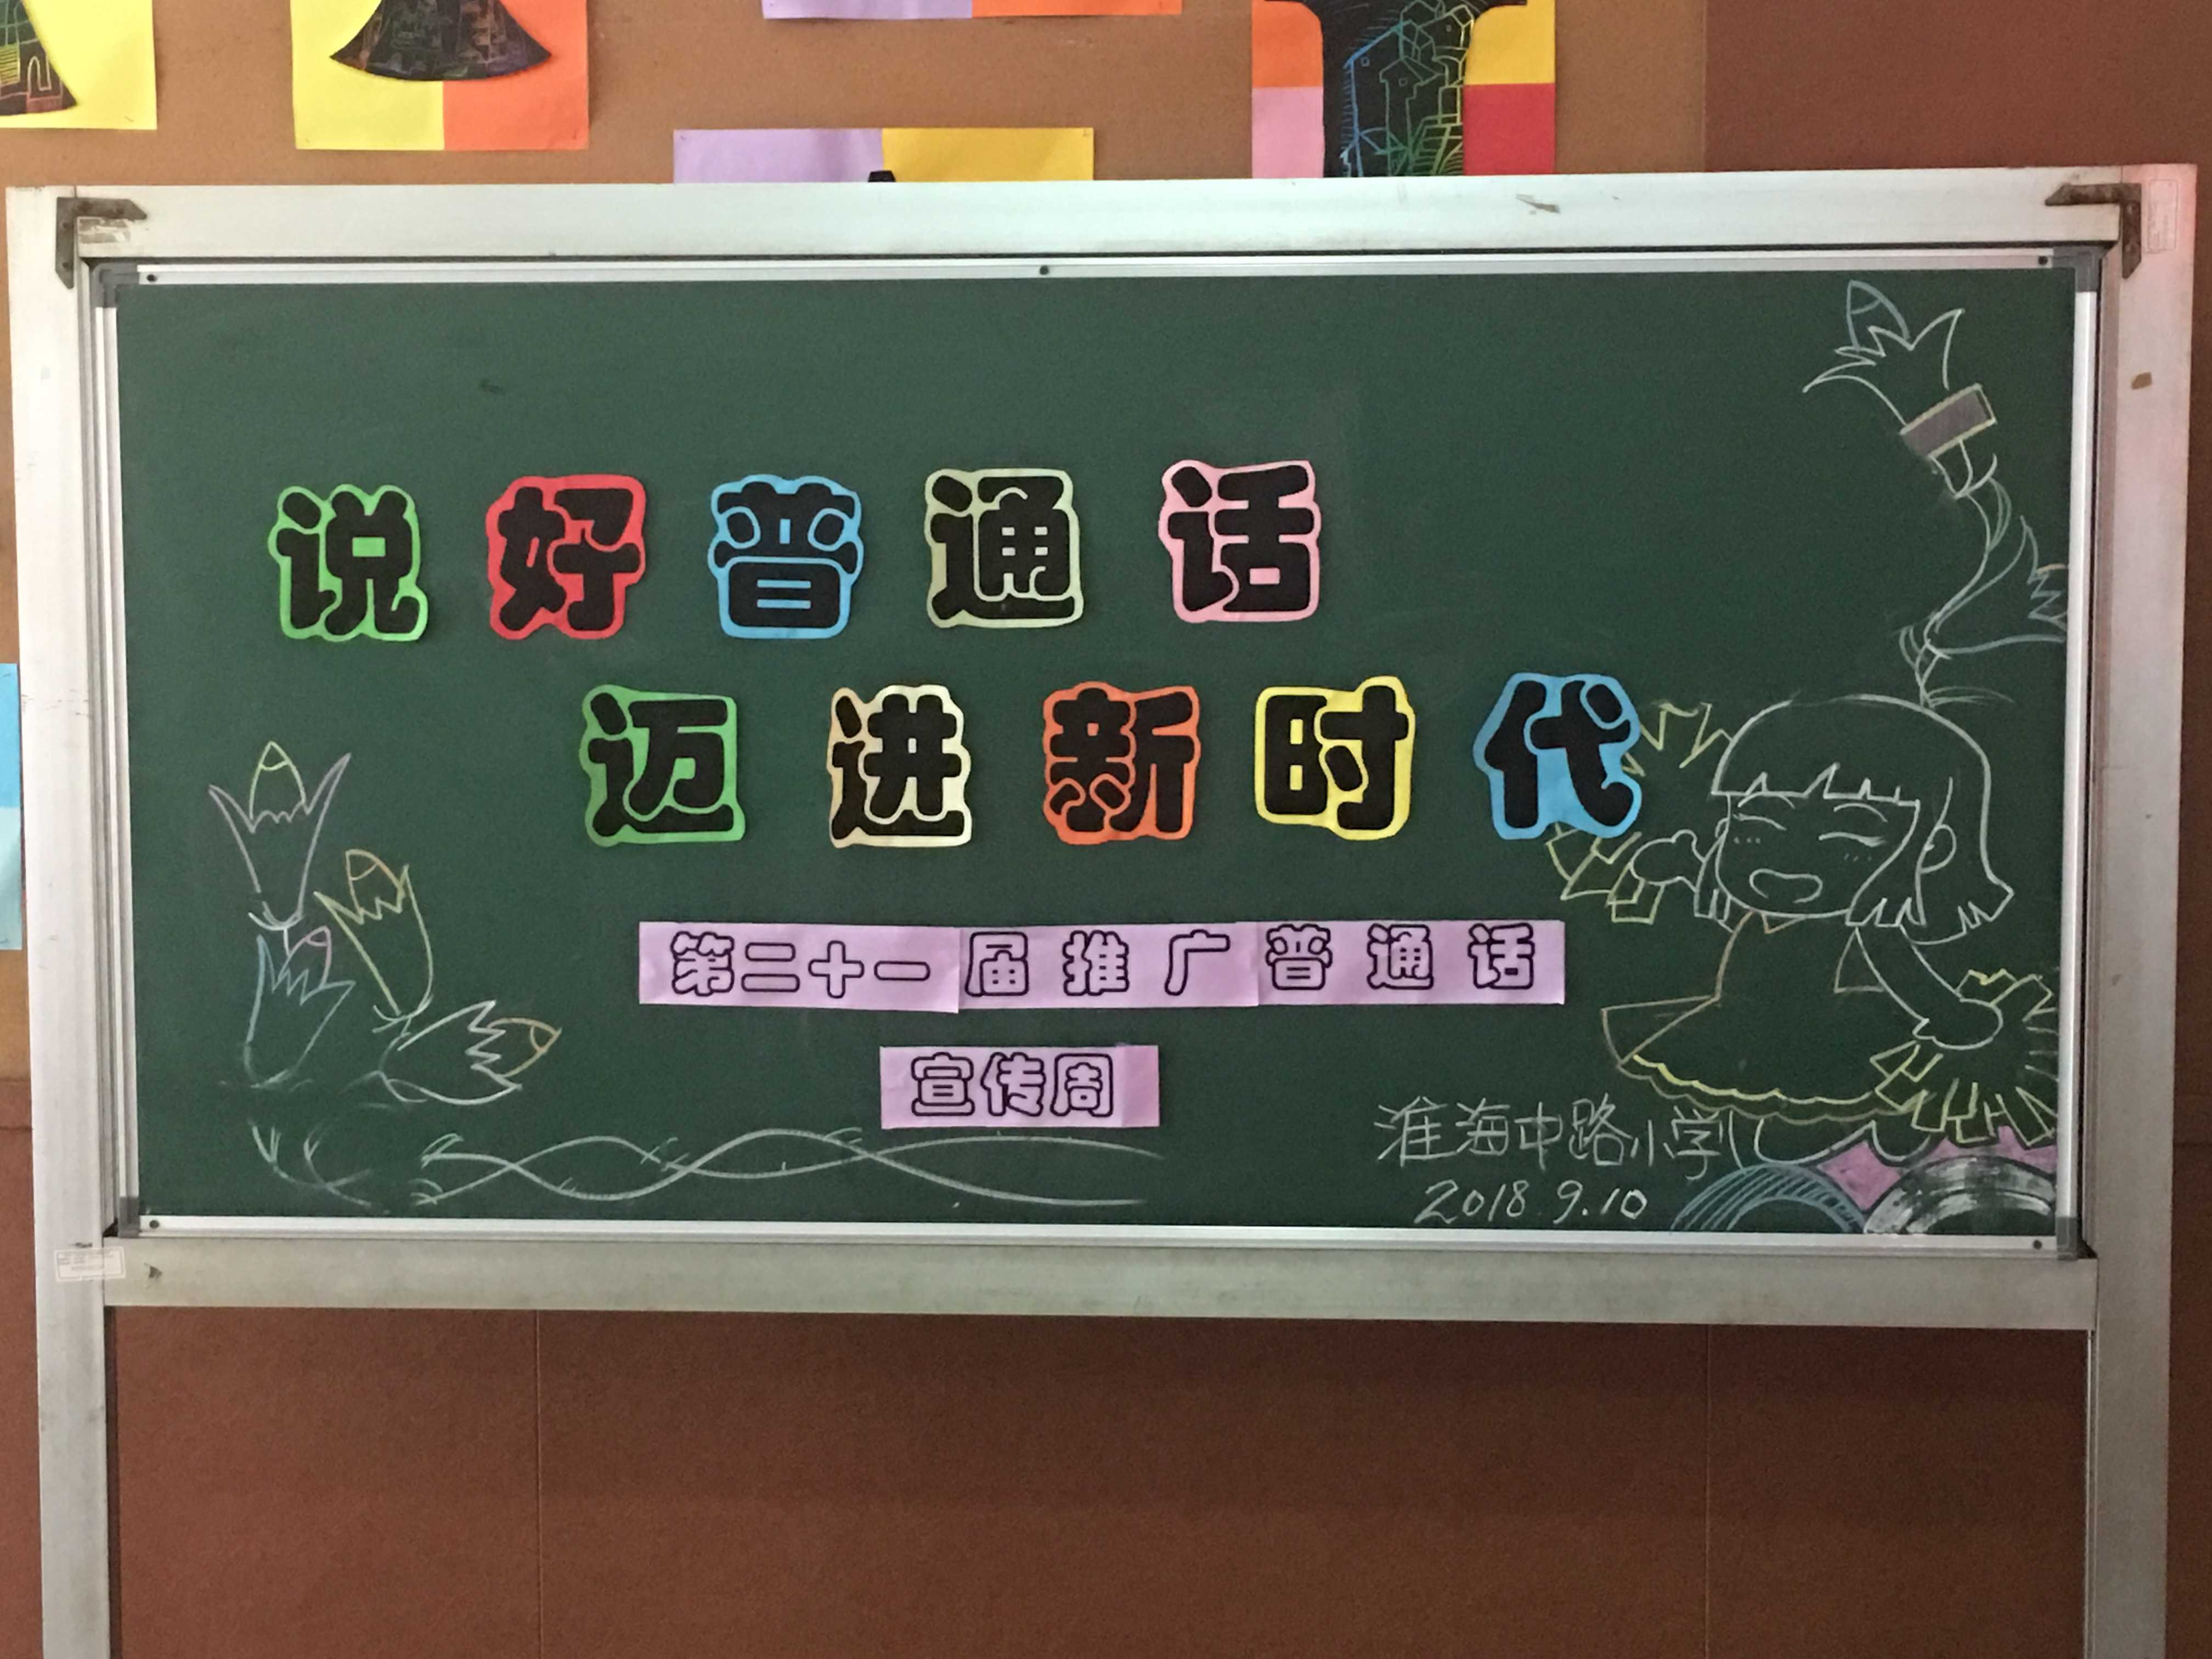 说好普通话
迈进新时代
第二十一届推广普通话
宣传周
淮海中路小学
2018.9.10